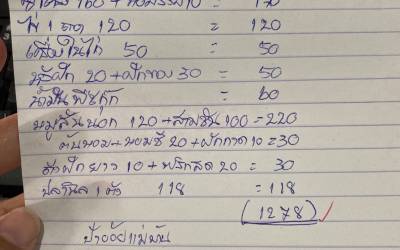 160 + หอมแดง 10 = 170
ไข่ 1 ถาด 120 = 120
เครื่องในไก่ 50 = 50
20 + ฝักทอง 30 = 50
น้ำมันพืชกุ๊ก = 60
หมูสันนอก 120 + สามชั้น 100 = 220
ต้นหอม + หอมชี 20 + ผักกาด 10 = 30
ถั่วฝักยาว 10 + พริกสด 20 = 30
ปลานิล 1 ตัว 118 = 118
(1278)